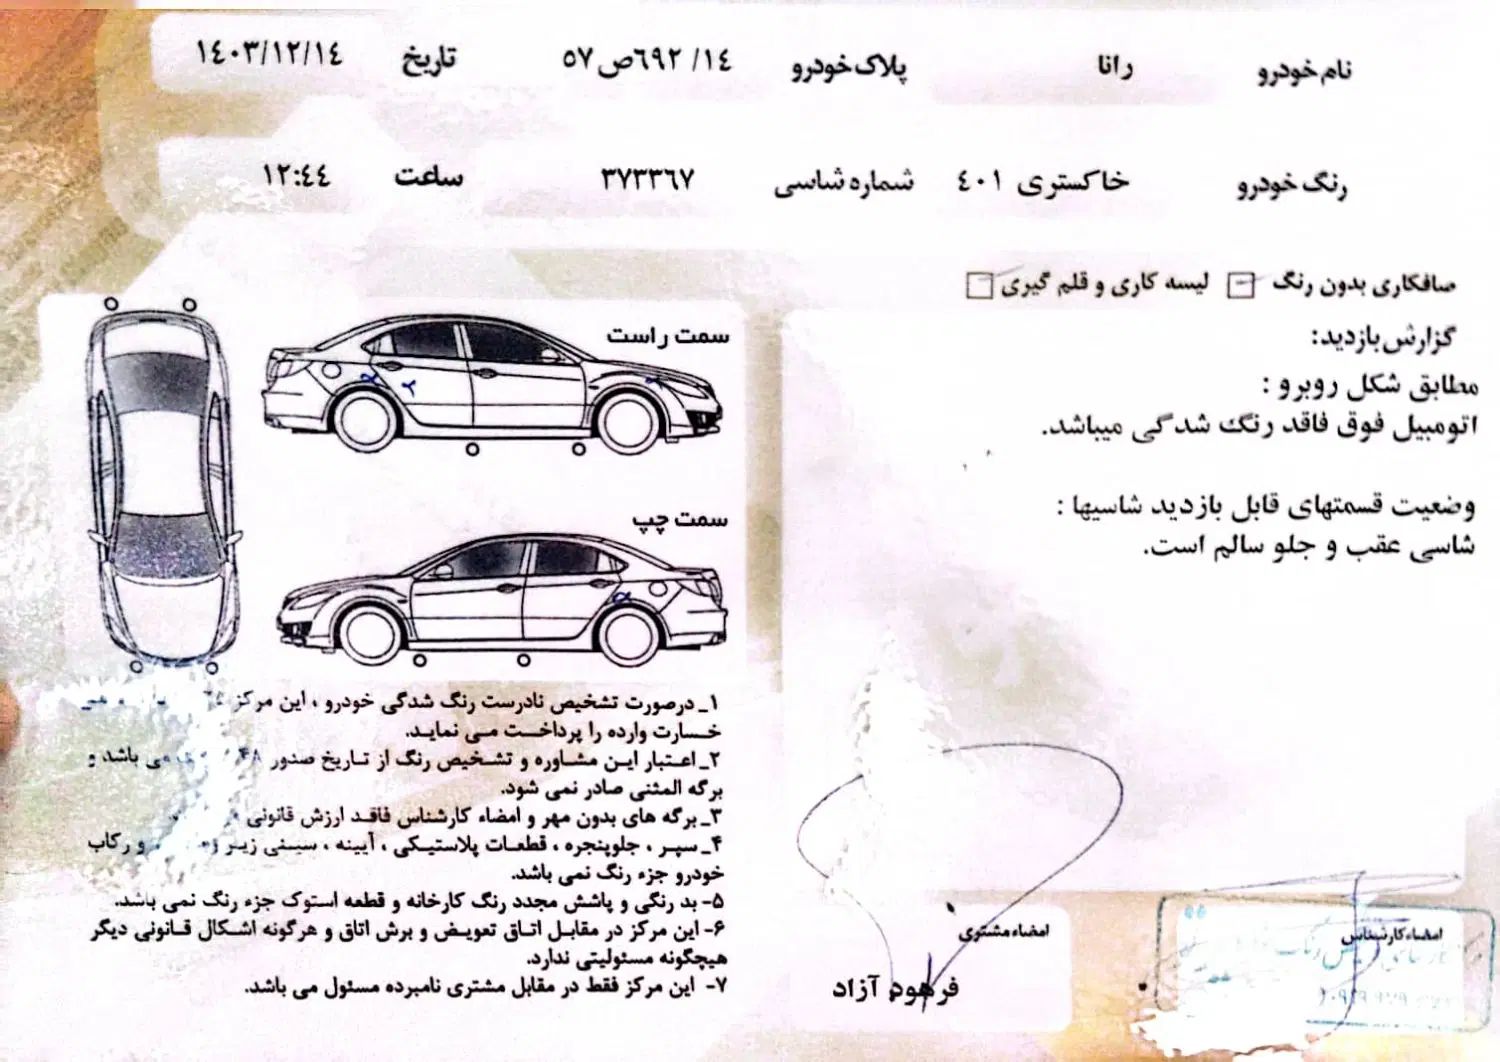 نام خودرو رانا پلاک خودرو ١٤/ ٦٩٢ص٥٧ تاریخ ١٤٠٣/١٢/١٤
رنگ خودرو خاکستری ٤٠١ شماره شاسی ٣٧٣٣٦٧ ساعت ١٢:٤٤
صافکاری بدون رنگ لیسه کاری و قلم گیری
گزارش بازدید:
مطابق شکل روبرو :
اتومبیل فوق فاقد رنگ شدگی میباشد.
وضعیت قسمتهای قابل بازدید شاسیها :
شاسی عقب و جلو سالم است.
سمت راست
سمت چپ
۱_ درصورت تشخیص نادرست رنگ شدگی خودرو ، این مرکز
خسارت وارده را پرداخت می نماید.
۲_ اعتبار این مشاوره و تشخیص رنگ از تاریخ صدور ۴۸ می باشد و
برگه المثنی صادر نمی شود.
۳_ برگه های بدون مهر و امضاء کارشناس فاقد ارزش قانونی
۴_ سپر ، جلوپنجره ، قطعات پلاستیکی ، آیینه ، سینی زیر و رکاب
خودرو جزء رنگ نمی باشد.
۵- بد رنگی و پاشش مجدد رنگ کارخانه و قطعه استوک جزء رنگ نمی باشد.
۶- این مرکز در مقابل اتاق تعویض و برش اتاق و هرگونه اشکال قانونی دیگر
هیچگونه مسئولیتی ندارد.
۷- این مرکز فقط در مقابل مشتری نامبرده مسئول می باشد.
امضاء مشتری
فرهود آزاد
امضاء کارشناس